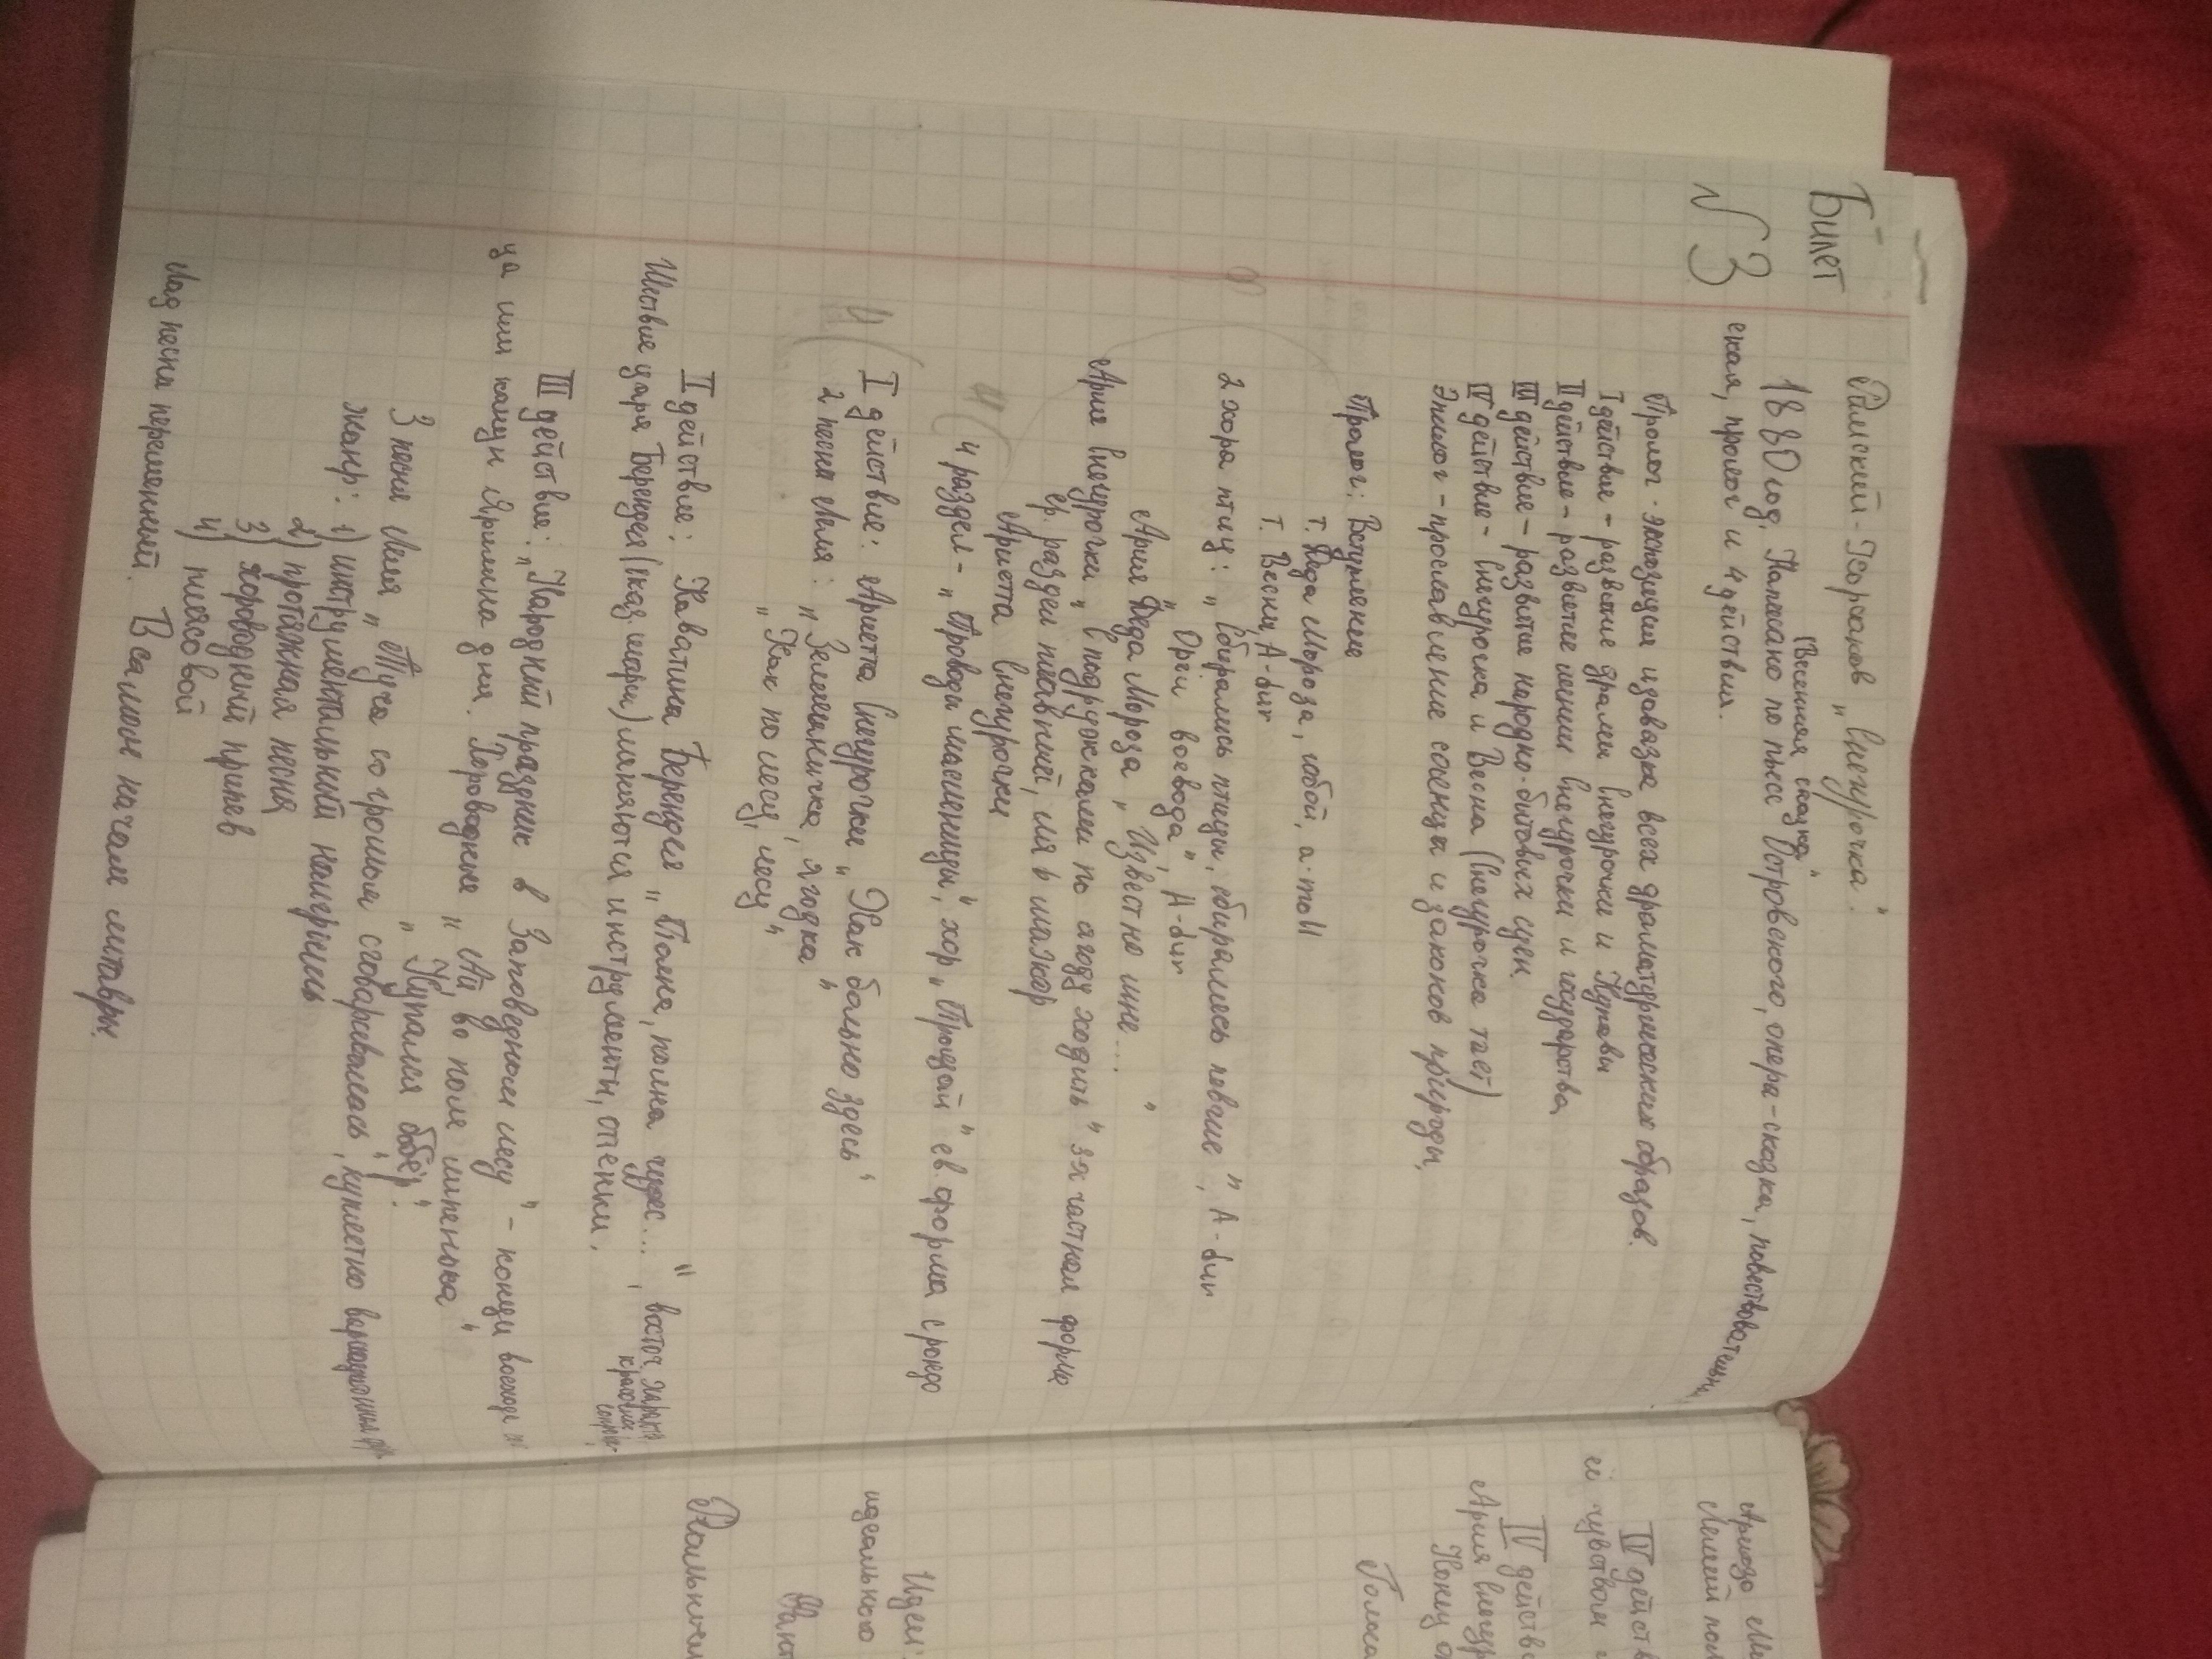 Билет
№ 3
Римский-Корсаков „Снегурочка".
(Весенняя сказка"
1880 год. Написано по пьесе Островского, опера-сказка, повествователь
ская, пролог и 4 действия.
Пролог - экспозиция и завязка всех драматургических образов.
I действие - развитие драмы Снегурочки и Купавы
II действие - развитие линии Снегурочки и государства
III действие - развитие народно-бытовых сцен
IV действие - Снегурочка и Весна (Снегурочка тает)
Эпилог - прославление солнца и законов природы.
Пролог: Вступление
т. Деда Мороза, гобой, a-moll
т. Весны, A-dur
2 хора птиц: „Сбирались птицы, сбирались певчие", A-dur
„Орёл воевода", A-dur
Ария Деда Мороза „Известно мне.... "
Ария Снегурочки „С подружками по ягоду ходить" 3х частная форма
ср. раздел плавный, ля b мажор
Ариетта Снегурочки
4 раздел - „Проводы масленицы", хор „Прощай" ев форма с рондо
I действие: Ариетта Снегурочки „Как больно здесь"
2 песни Леля: „Земляничка, ягодка"
„Как по лесу, лесу"
II действие: Каватина Берендея „Полна, полна чудес...", восточ. характ.
Шествие царя Берендея (сказ. марш) меняются инструменты, оттенки.
III действие: „Народный праздник в Заповедном лесу" - конец
ца или канун Ярилина дня. Хороводная „Ай, во поле липенька"
„Купался бобёр".
3 песня Леля „Туча со громом сговаривалась", куплетно вариационная ф
жанр: 1) инструментальный наигрыш
2) протяжная песня
3) хороводный припев
4) плясовой
Лад песни переменный. В самом начале литавры.
Лешии
IV действ
и чувством
IV действ
Ария Снегур
Конец
Голоса
Идея:
идеального